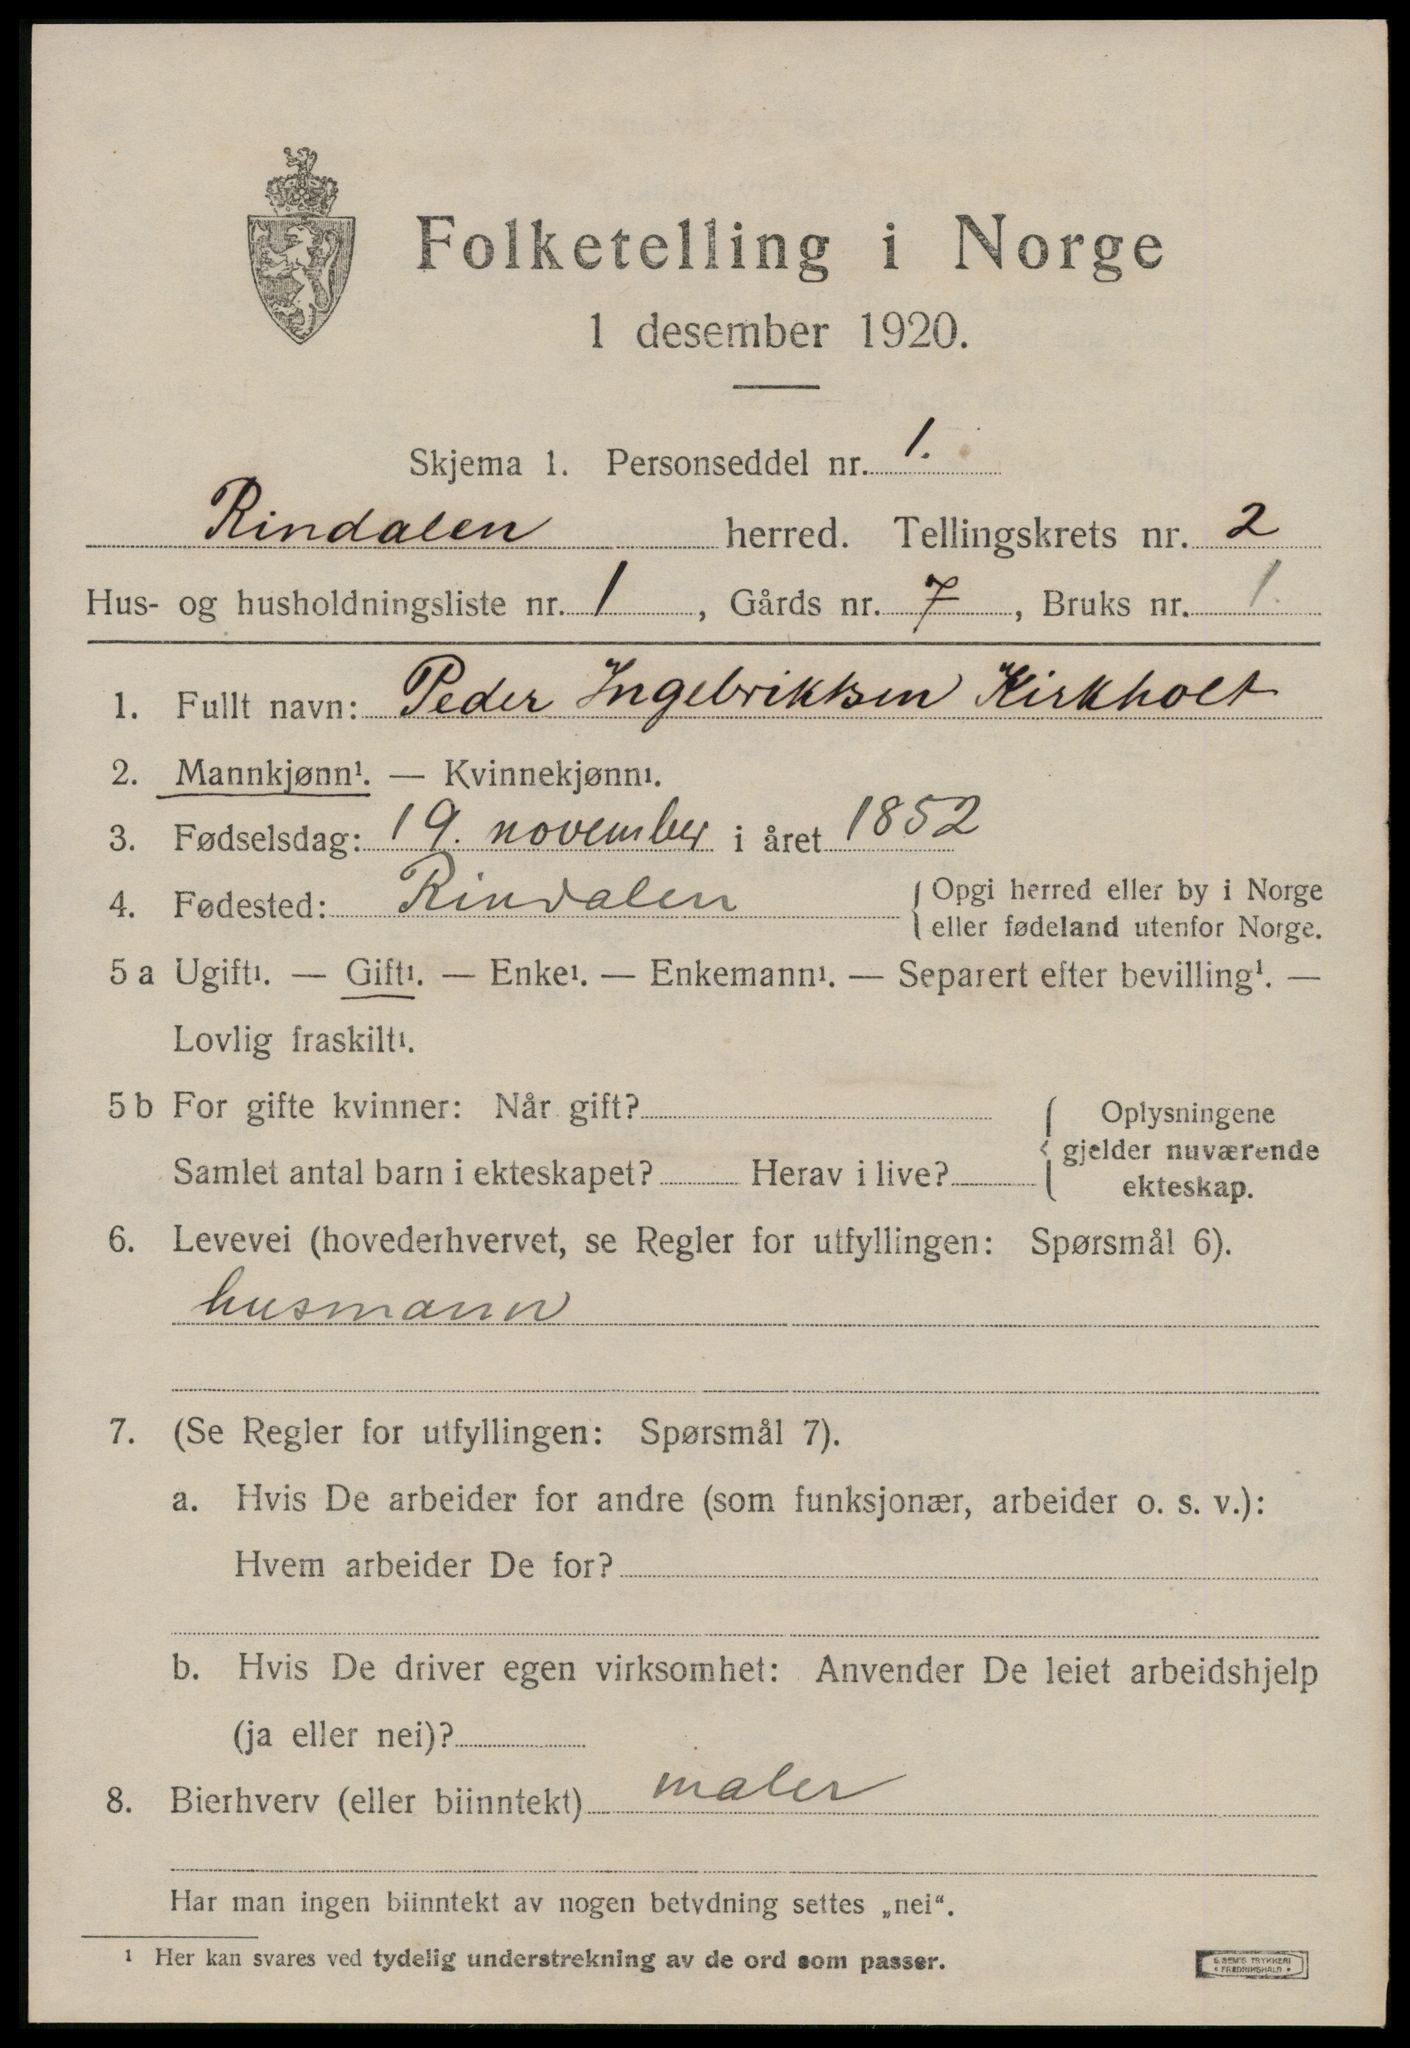 Folketelling i Norge
1 desember 1920.
Skjema 1. Personseddel nr. 1.
Rindalen herred. Tellingskrets nr. 2
Hus- og husholdningsliste nr. 1, Gårds nr. 7, Bruks nr. 1.
1. Fullt navn: Peder Ingebriktsen Kirkholt
2. Mannkjønn¹. — Kvinnekjønn¹.
3. Fødselsdag: 19. november i året 1852
4. Fødested: Rindalen { Opgi herred eller by i Norge
eller fødeland utenfor Norge.
5 a Ugift¹. — Gift¹. — Enke¹. — Enkemann¹. — Separert efter bevilling¹. —
Lovlig fraskilt¹.
5 b For gifte kvinner: Når gift?
Samlet antal barn i ekteskapet? Herav i live?
{ Oplysningene
gjelder nuværende
ekteskap.
6. Levevei (hovederhvervet, se Regler for utfyllingen: Spørsmål 6).
husmann
7. (Se Regler for utfyllingen: Spørsmål 7).
a. Hvis De arbeider for andre (som funksjonær, arbeider o. s. v.):
Hvem arbeider De for?
b. Hvis De driver egen virksomhet: Anvender De leiet arbeidshjelp
(ja eller nei)?
8. Bierhverv (eller biinntekt) maler
Har man ingen biinntekt av nogen betydning settes „nei“.
¹ Her kan svares ved tydelig understrekning av de ord som passer.
E. SEM'S TRYKKERI
• FREDRIKSHALD •